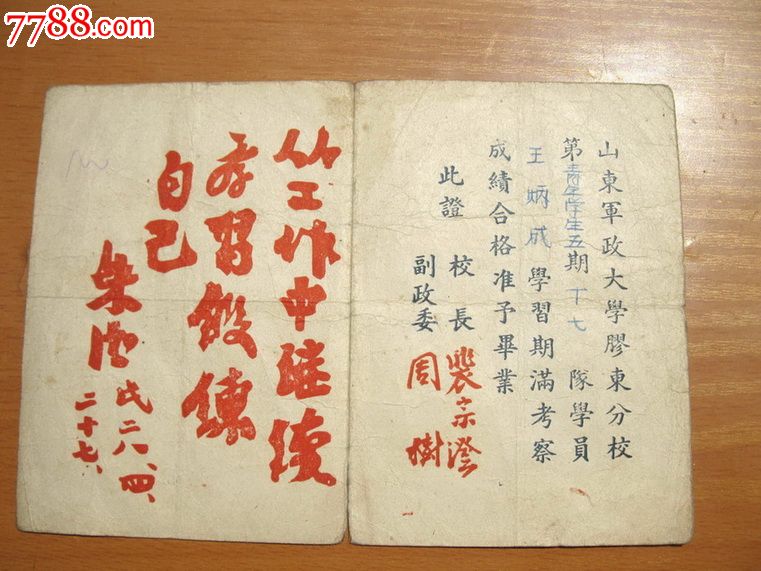 7788.com
山東軍政大學膠東分校
第青年學生五期十七隊學員
王炳成學習期滿考察
成績合格准予畢業
此證
校長 裴宗澄
副政委 周樹
从工作中继续
学習锻鍊
自己
朱德
民二八、四、
二十七、